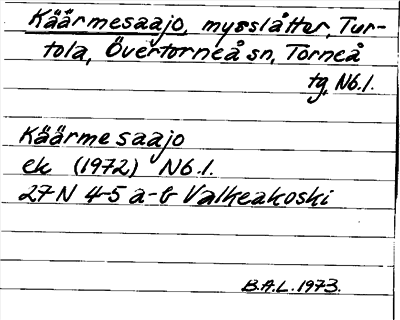 Käärmesaajo, mysslåtter, Tur-
tola, Övertorneå sn, Torneå
tg, Nb.l.
Käärmesaajo
ek (1972) Nb.l.
27 N 4-5 a-b Valkeakoski
B.A.L. 1973.